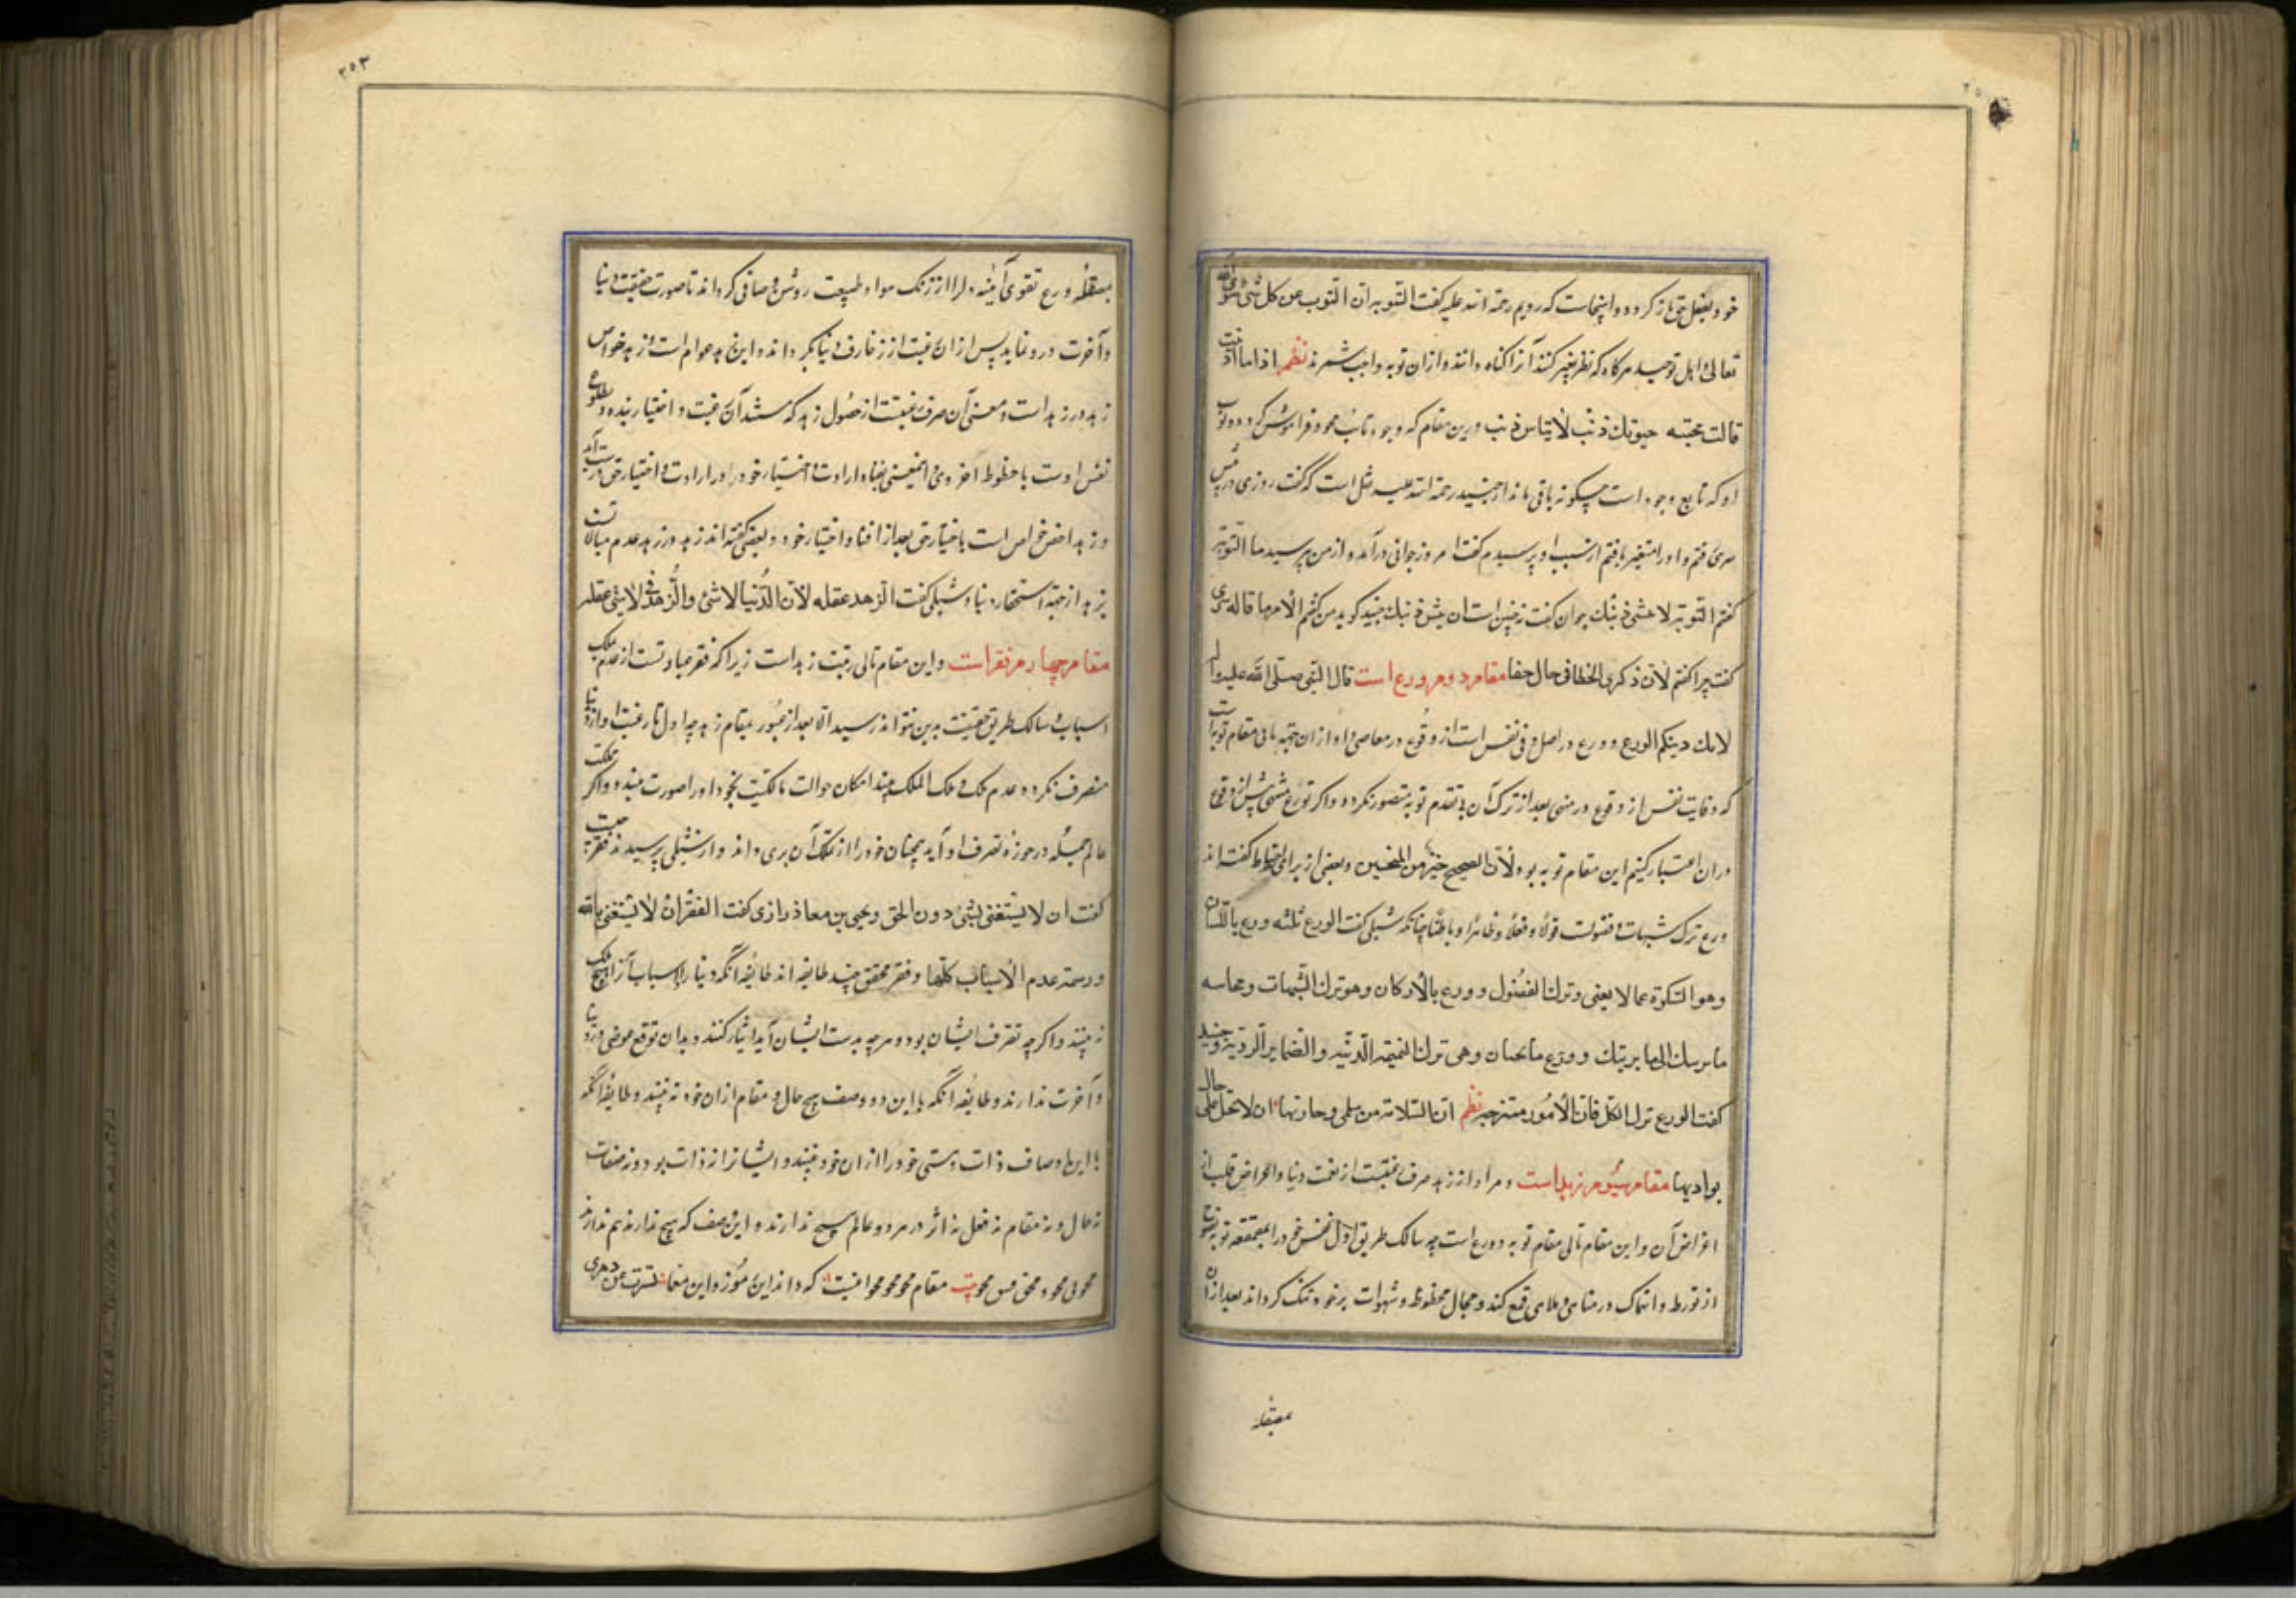 خود بفعل حق باز کردد و اینجاست که رویم رحمة الله علیه کفت التوبه ان التوب عن کل شئ سوی الله
تعالی و اهل توحید هرکاه که نظر بغیر کنند آنرا کناه دانند و از ان توبه واجب شمرند نظم اذا ما اذنبت
قالت محبته حیوتك ذنب لا یقاس ذنب درین مقام که وجود تائب محو و فراموش کردد ذنوب
او که تابع وجود است چکونه باقی ماند از جنید رحمة الله علیه نقل است که کفت روزی در پیش
سری رفتم و او را متغیر یافتم از سبب او پرسیدم کفت امروز جوانی درآمد و از من پرسید ما التوبة
کفتم التوبة لا تنسی ذنبك جوان کفت نه چنین است ان تنسی ذنبك جنید کوید من کفتم الامر ما قاله سری
کفت چرا کفتم لان ذکری الخطا فی حال صفا مقام دوم ورع است قال النبی صلی الله علیه و آله
ملاك دینکم الورع و ورع در اصل توقی نفس است از وقوع در معاصی و او از ان جهة تالی مقام توبه است
که وقایت نفس از وقوع در منهی بعد از ترک آن بی تقدم توبه متصور نکردد و اکر تورع منتهی پیش از وقوع
در ان اعتبار کنیم این مقام توبه بود لان الصحیح خیر من و بعضی از برای احتیاط کفته اند
ورع ترک شبهات و فضولست قولا و فعلا و ظاهرا و باطنا چنانکه شبلی کفت الورع ثلثه ورع باللسان
و هو السکوت عما لا یعنی و ترك الفضول و ورع بالارکان و هو ترك الشبهات و محاسبه
ما یریبك الی ما لا یریبك و ورع بالجنان و هی ترك الدنیه و الضمایر الردیة و جنید
کفت الورع ترك الکل فان الامور ممتزجه نظم ان السلامة من سلمی و جارتها ان لا تحل علی حال
بوادیها مقام سیوم زهد است و مراد از زهد صرف رغبتست از نعمت دنیا و اعراض قلب از
اعراض آن و این مقام تالی مقام توبه و ورع است چه سالک طریق اول نفس خود را بمقمعه توبه نصوح
از تورط و انهماک در مناهی و ملاهی قمع کند و مجال حظوظ و شهوات برخود تنک کرداند بعد از ان
بمصقله
۲۵۳
بمصقله ورع و تقوی آینه دل را از زنک هوا و طبیعت روشن و صافی کرداند تا صورت حقیقت دنیا
و آخرت درو نماید پس از ان رغبت از زخارف دنیا بکرداند و این زهد عوام است و زهد خواص
زهد در زهد است و معنی آن صرف رغبتست از حصول زهد که مستند آن رغبت و اختیار بنده و تطلع
نفس اوست با حظوظ اخروی و اینمعنی بفناء ارادت و اختیار خود در ارادت و اختیار حق درست آید
و زهد اخص خواص است باختیار حق بعد از افناء اختیار خود و بعضی کفته اند زهد در زهد عدم مبالاتست
بزهد از جهة استحقار دنیا و شبلی کفت الزهد غفله لان الدنیا لا شئ و الزهد فی لا شئ غفله
مقام چهارم فقر است و این مقام تالی رتبت زهد است زیرا که فقر عبارتست از عدم ملک
اسباب و سالک طریق حقیقت بدین نتواند رسید الا بعد از عبور بمقام زهد چه اول تا رغبت او از دنیا
منصرف نکردد عدم ملک در ملک الملک بیند امکان حوالت مالکیت بخود او را صورت نبندد و اکر مملکت
عالم جمله در حوزه تصرف او آید همچنان خود را از تملک آن بری داند و از شبلی پرسیدند فقر چیست
کفت ان لا یستغنی بشئ دون الحق و یحیی بن معاذ رازی کفت الفقر ان لا یستغنی بالله
و رسمه عدم الاسباب کلها و فقر محقق چند طایفه اند طایفه آنکه دنیا را و اسباب آنرا هیچ ملک
نه بینند و اکرچه تصرف ایشان بود و هرچه بدست ایشان آید ایثار کنند و بدان توقع عوضی در دنیا
و آخرت ندارند و طایفه آنکه با این دو وصف هیچ حال و مقام از ان خود نه بینند و طایفه آنکه
با این اوصاف ذات و هستی خود را از ان خود نبینند و ایشانرا نه ذات بود و نه صفات
نه حال و نه مقام نه فعل نه اثر در هر دو عالم هیچ ندارند و این وصف که هیچ ندارند هم ندارند
محو فی محو و محق بیت مقام محو محو محو اینست که داند این رموز و این مقامات تسترت عن دهری